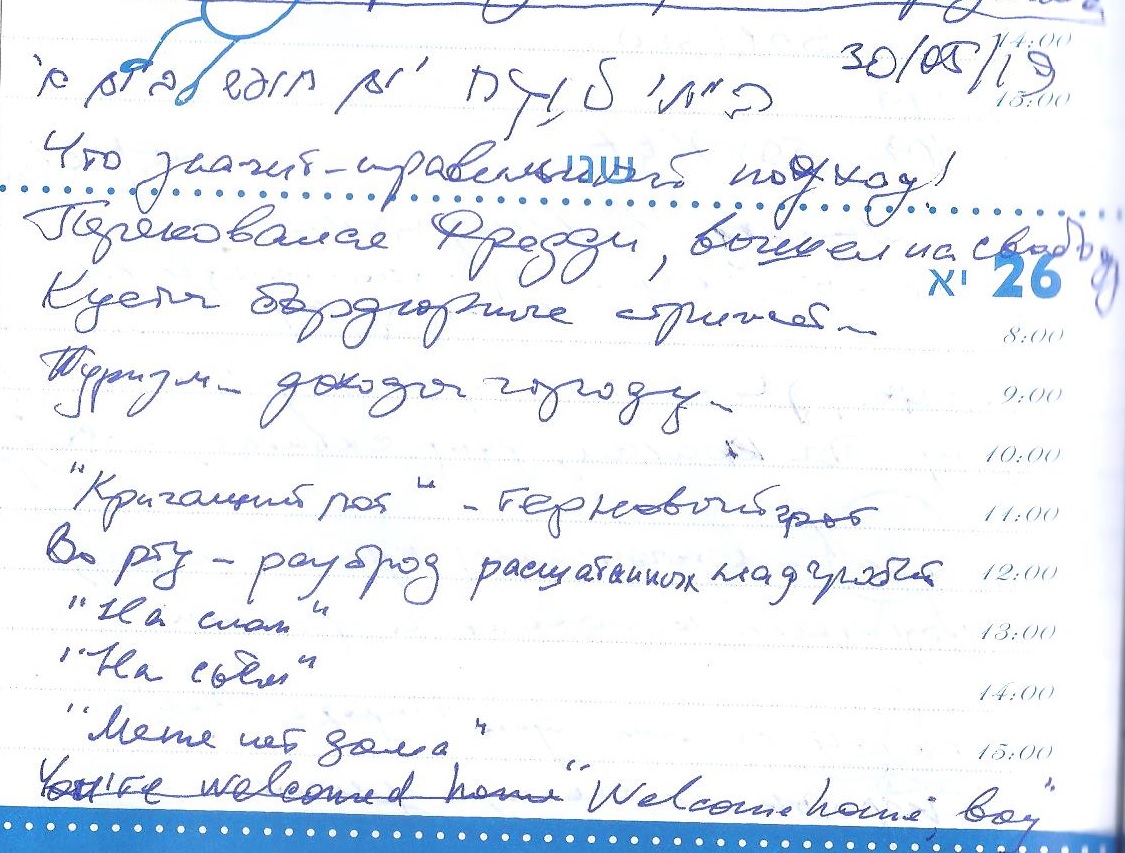 14:00
30/05/19
15:00
Что значит - правильный подход!
שני
Перековался Фредди, вышел на свободу
26 יא
Кусты бордюрные стрижёт -
8:00
Туризм - доходы городу -
9:00
10:00
"Кричащий рот" - терновый грот
11:00
Во рту - разброд расшатанных надгробий
12:00
"На слом"
13:00
"На съём"
14:00
"Меня нет дома"
15:00
You're welcomed home "Welcome home, boy"